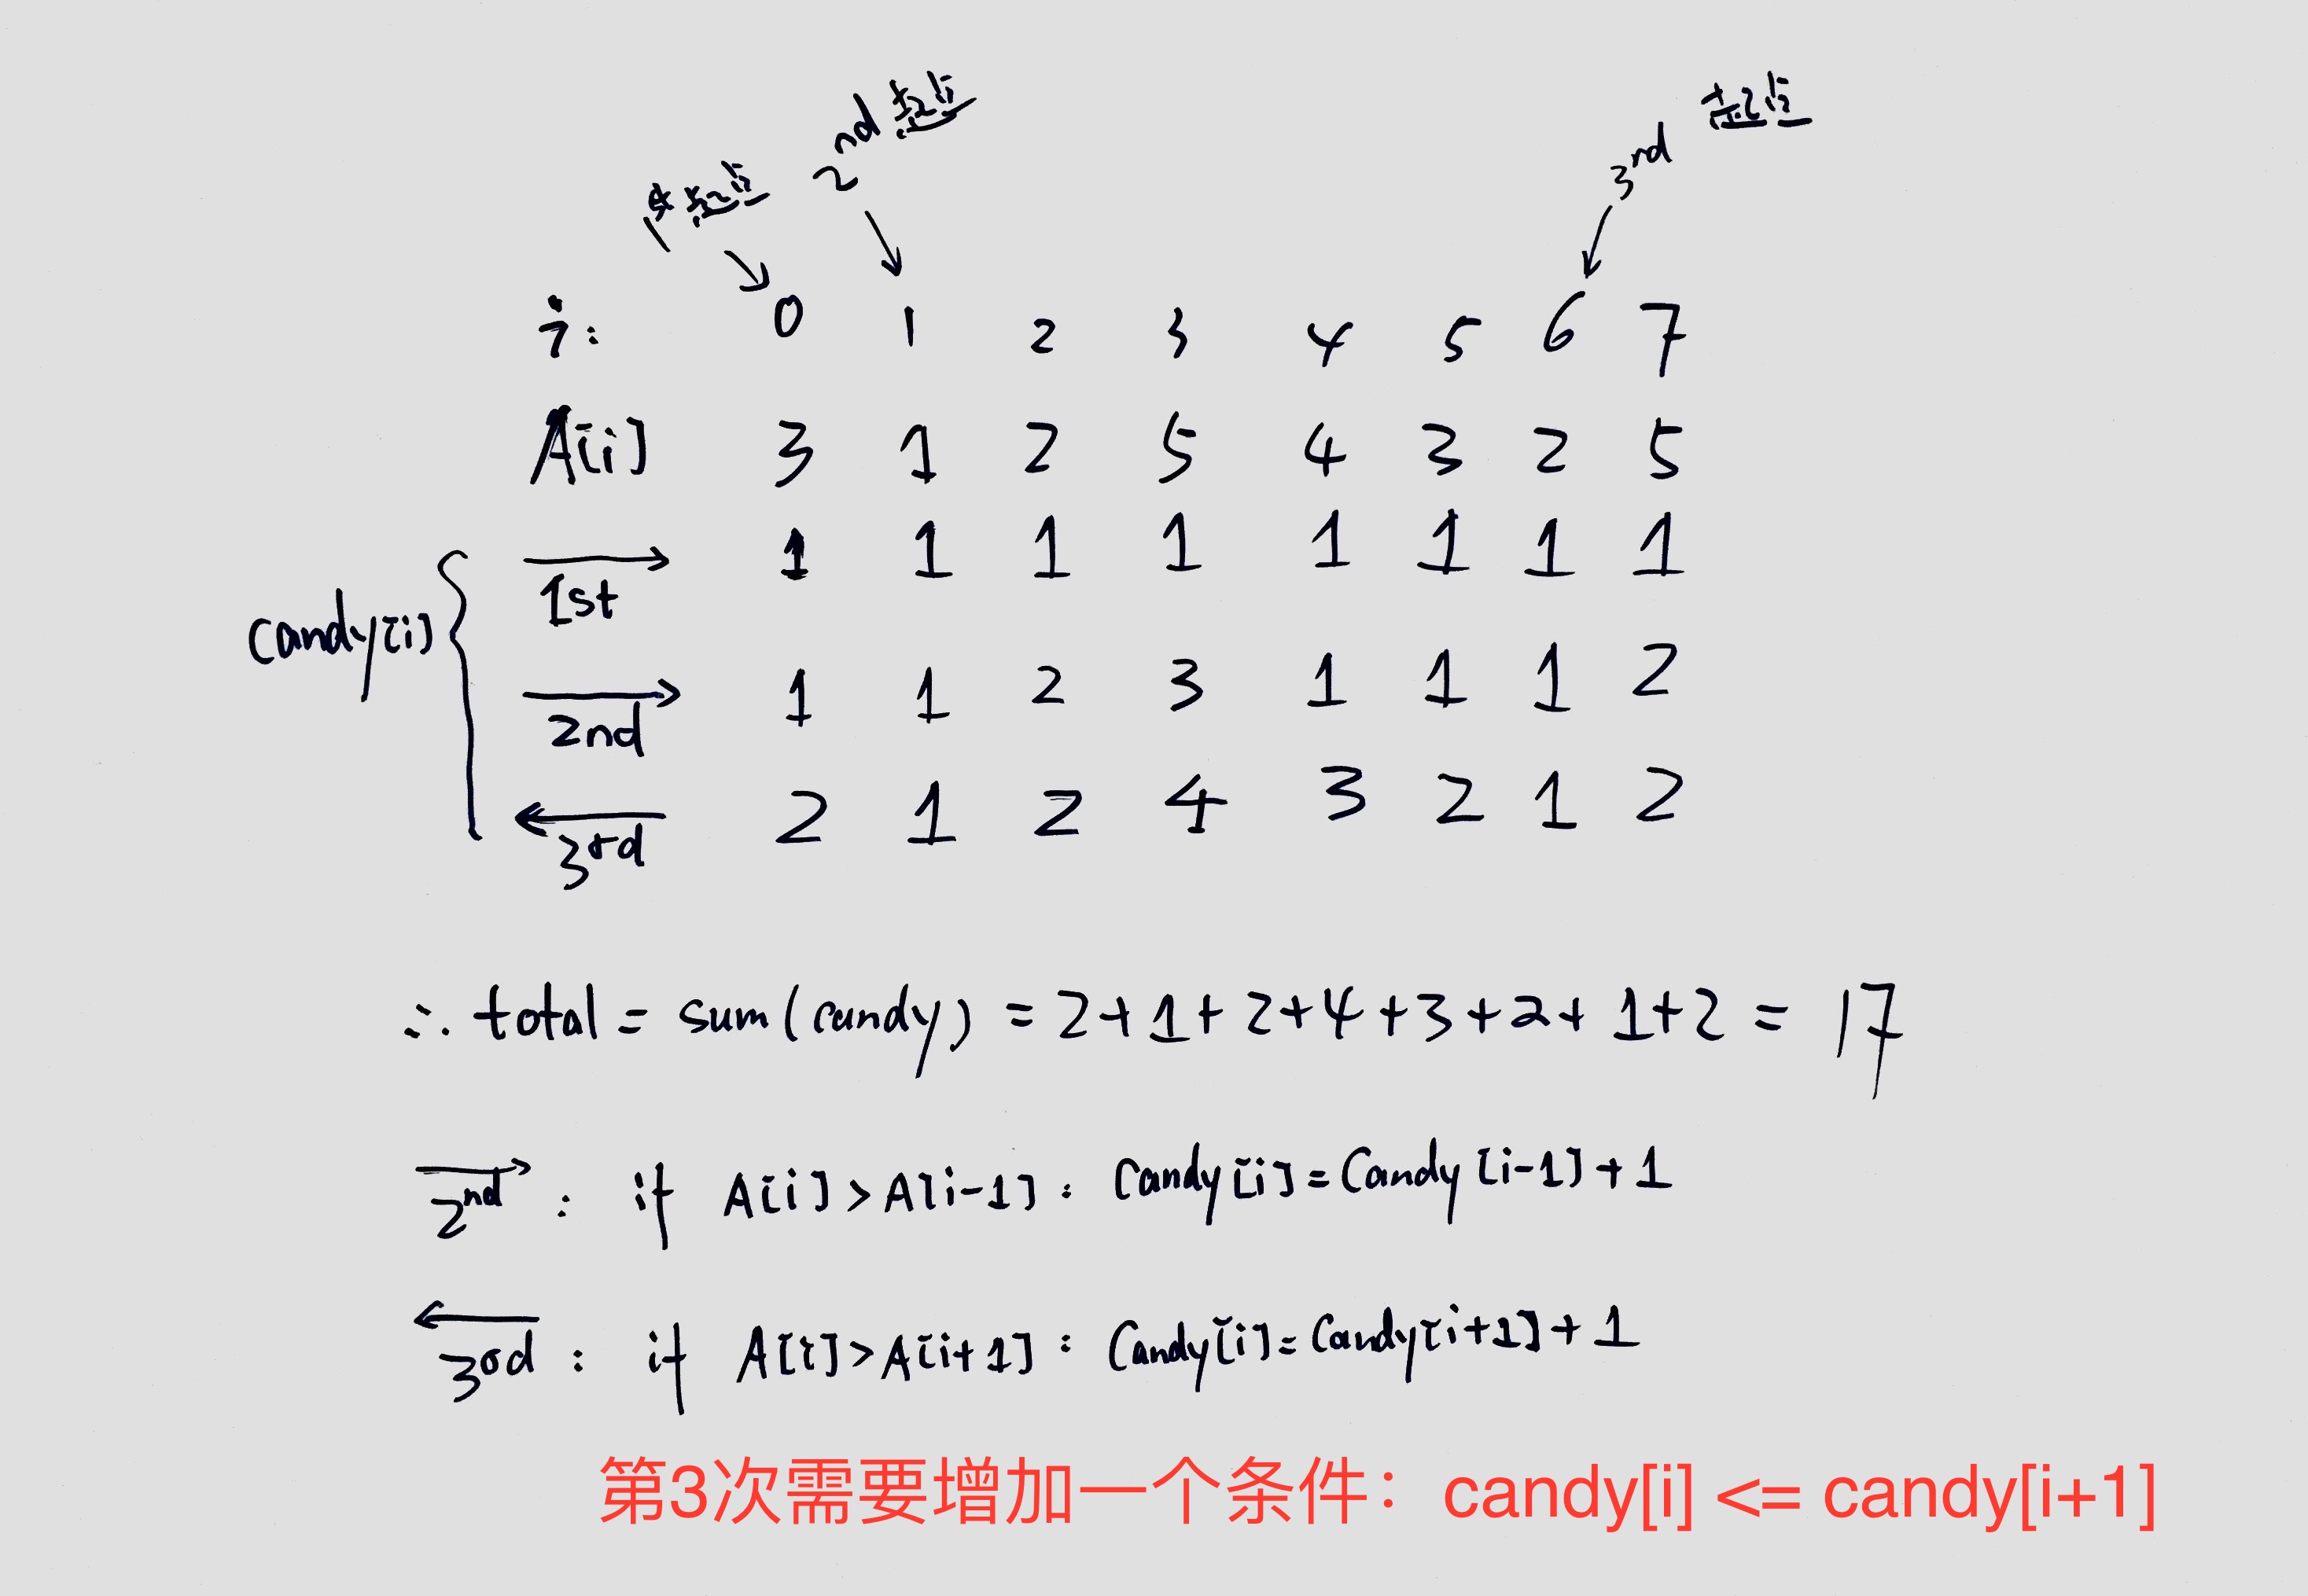 2nd 起始
3nd 起始
起始
i: 0 1 2 3 4 5 6 7
A[i] 3 1 2 5 4 3 2 5
1st 1 1 1 1 1 1 1 1
candy[i]
2nd 1 1 2 3 1 1 1 2
3rd 2 1 2 4 3 2 1 2
∴ total = sum(candy) = 2+1+2+4+3+2+1+2 = 17
2nd : if A[i]>A[i-1] : Candy[i]=Candy[i-1]+1
3rd : if A[i]>A[i+1] : Candy[i]=Candy[i+1]+1
第3次需要增加一个条件：candy[i] <= candy[i+1]